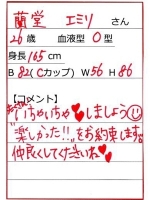 蘭堂 エミリ さん
26歳 血液型 O型
身長165cm
B 82(Cカップ) W56 H86
【コメント】
いちゃいちゃ♥しましょう☺
"楽しかった!!"をお約束します。
仲良くしてくださいね♥